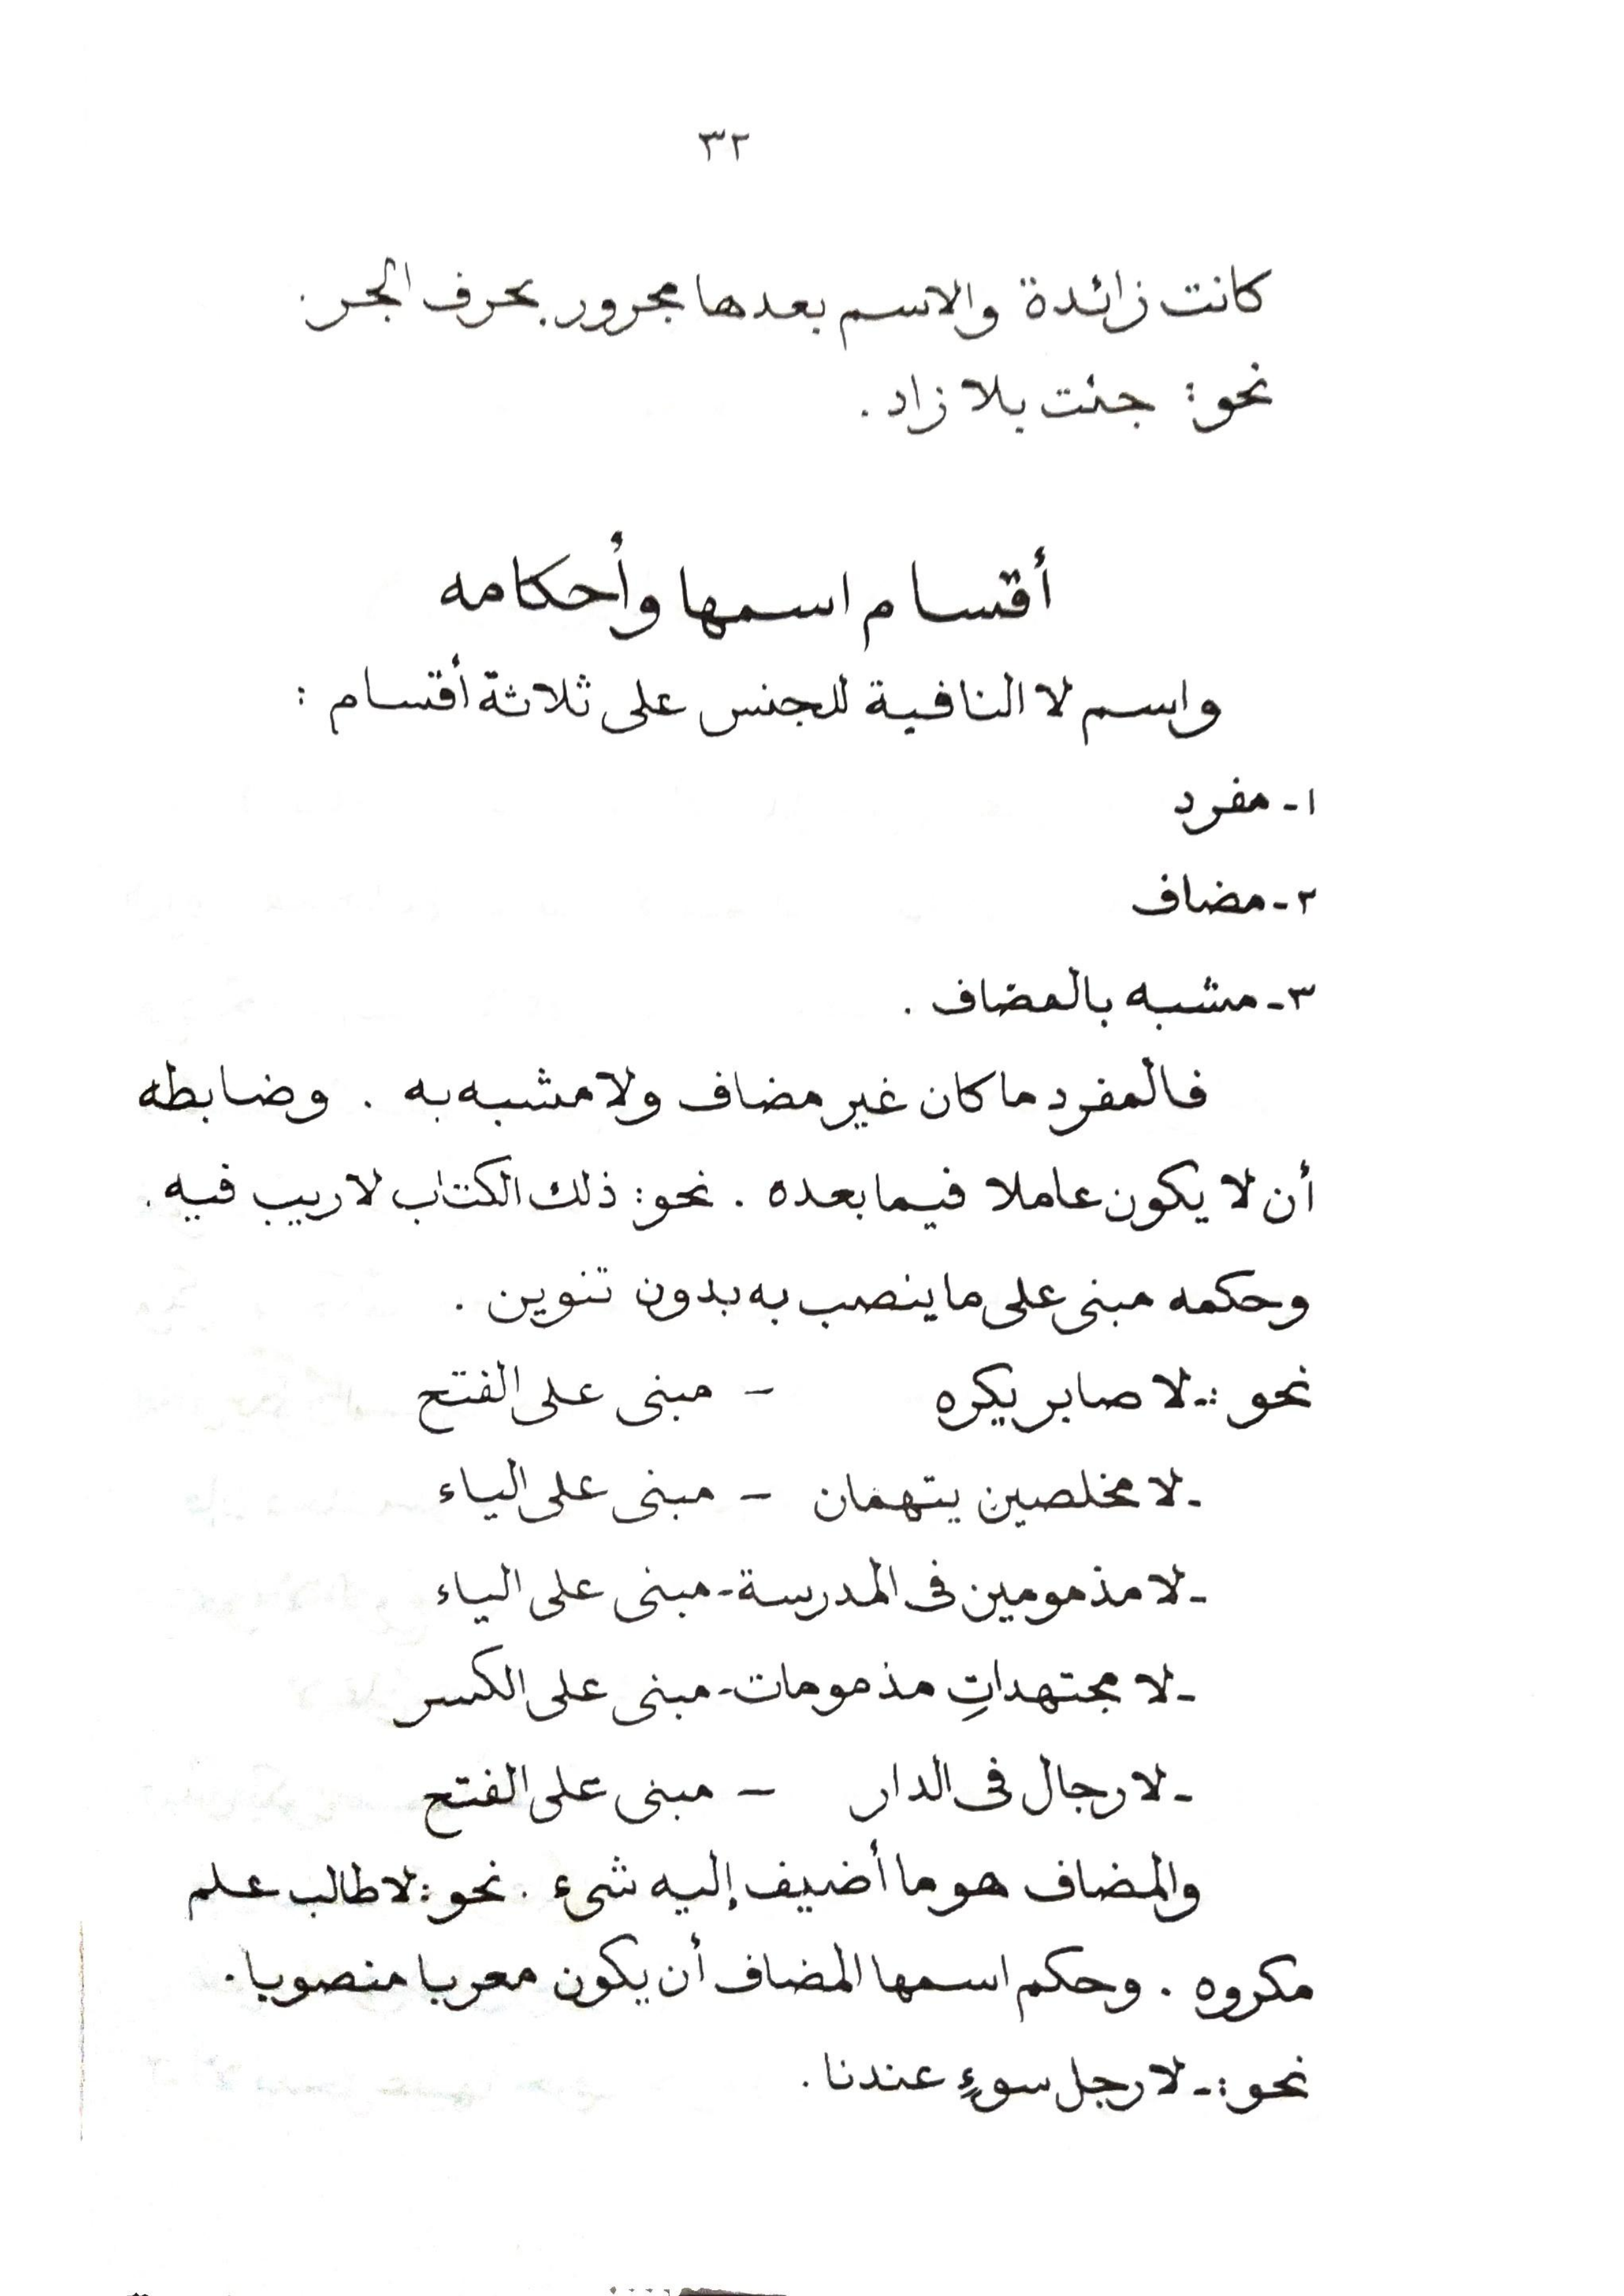 ٣٢
كانت زائدة والاسم بعدها مجرور بحرف الجر.
نحو: جئت بلا زاد.
أقسام اسمها وأحكامه
واسم لا النافية للجنس على ثلاثة أقسام:
١- مفرد
٢- مضاف
٣- مشبه بالمضاف.
فالمفرد ما كان غير مضاف ولا مشبه به. وضابطه
أن لا يكون عاملا فيما بعده. نحو: ذلك الكتاب لا ريب فيه.
وحكمه مبنى على ما ينصب به بدون تنوين.
نحو:- لا صابر يكره - مبنى على الفتح
- لا مخلصين يتهمان - مبنى على الياء
- لا مذمومين فى المدرسة - مبنى على الياء
- لا مجتهداتِ مذمومات - مبنى على الكسر
- لا رجال فى الدار - مبنى على الفتح
والمضاف هو ما أضيف إليه شىء. نحو: لا طالب علم
مكروه. وحكم اسمها المضاف أن يكون معربا منصوبا.
نحو:- لا رجل سوءٍ عندنا.